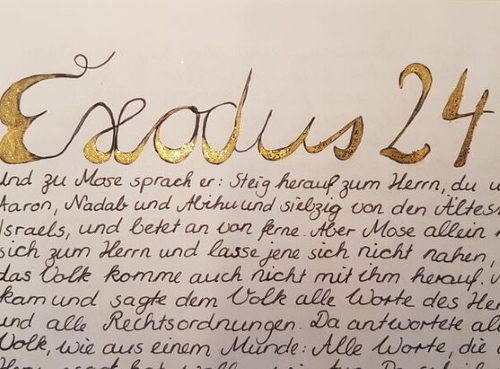 Exodus 24
und zu Mose sprach er: Steig herauf zum Herrn, du
Aaron, Nadab und Abihu und siebzig von den Ältes
Israels, und betet an von ferne. Aber Mose allein
sich zum Herrn und lasse jene sich nicht nahen,
das Volk komme auch nicht mit ihm herauf.
kam und sagte dem Volk alle Worte des He
und alle Rechtsordnungen. Da antwortete al
Volk, wie aus einem Munde: Alle Worte, die